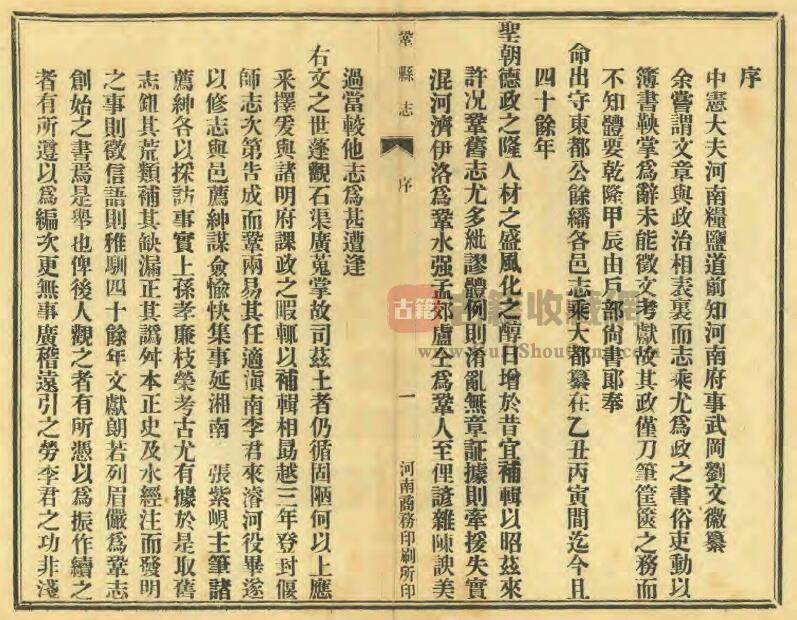 序
中憲大夫河南糧鹽道前知河南府事武岡劉文徽纂
余嘗謂文章與政治相表裏而志乘尤爲政之書俗吏動以
簿書鞅掌爲辭未能徵文考獻故其政僅刀筆筐篋之務而
不知體要乾隆甲辰由戶部尙書郞奉
命出守東都公餘繙各邑志乘大都纂在乙丑丙寅間迄今且
四十餘年
聖朝德政之隆人材之盛風化之醇日增於昔宜補輯以昭茲來
許况鞏舊志尤多紕謬體例則淆亂無章証據則牽援失實
混河濟伊洛爲鞏水强孟郊盧仝爲鞏人至俚諺雜陳諛美
鞏縣志
序
一
河南商務印刷所印
過當較他志爲甚遭逢
右文之世蓬觀石渠廣蒐掌故司茲土者仍循固陋何以上應
釆擇爰與諸明府課政之暇輒以補輯相勗越三年登封偃
師志次第告成而鞏兩易其任適滇南李君來濬河役畢遂
以修志與邑薦紳謀僉愉快集事延湘南 張紫峴主筆諸
薦紳各以採訪事實上孫孝廉枝榮考古尤有據於是取舊
志鈕其荒類補其缺漏正其譌舛本正史及水經注而發明
之事則徵信語則雅馴四十餘年文獻朗若列眉儼爲鞏志
創始之書焉是舉也俾後人觀之者有所憑以爲振作續之
者有所遵以爲編次更無事廣稽遠引之勞李君之功非淺
古籍
收藏